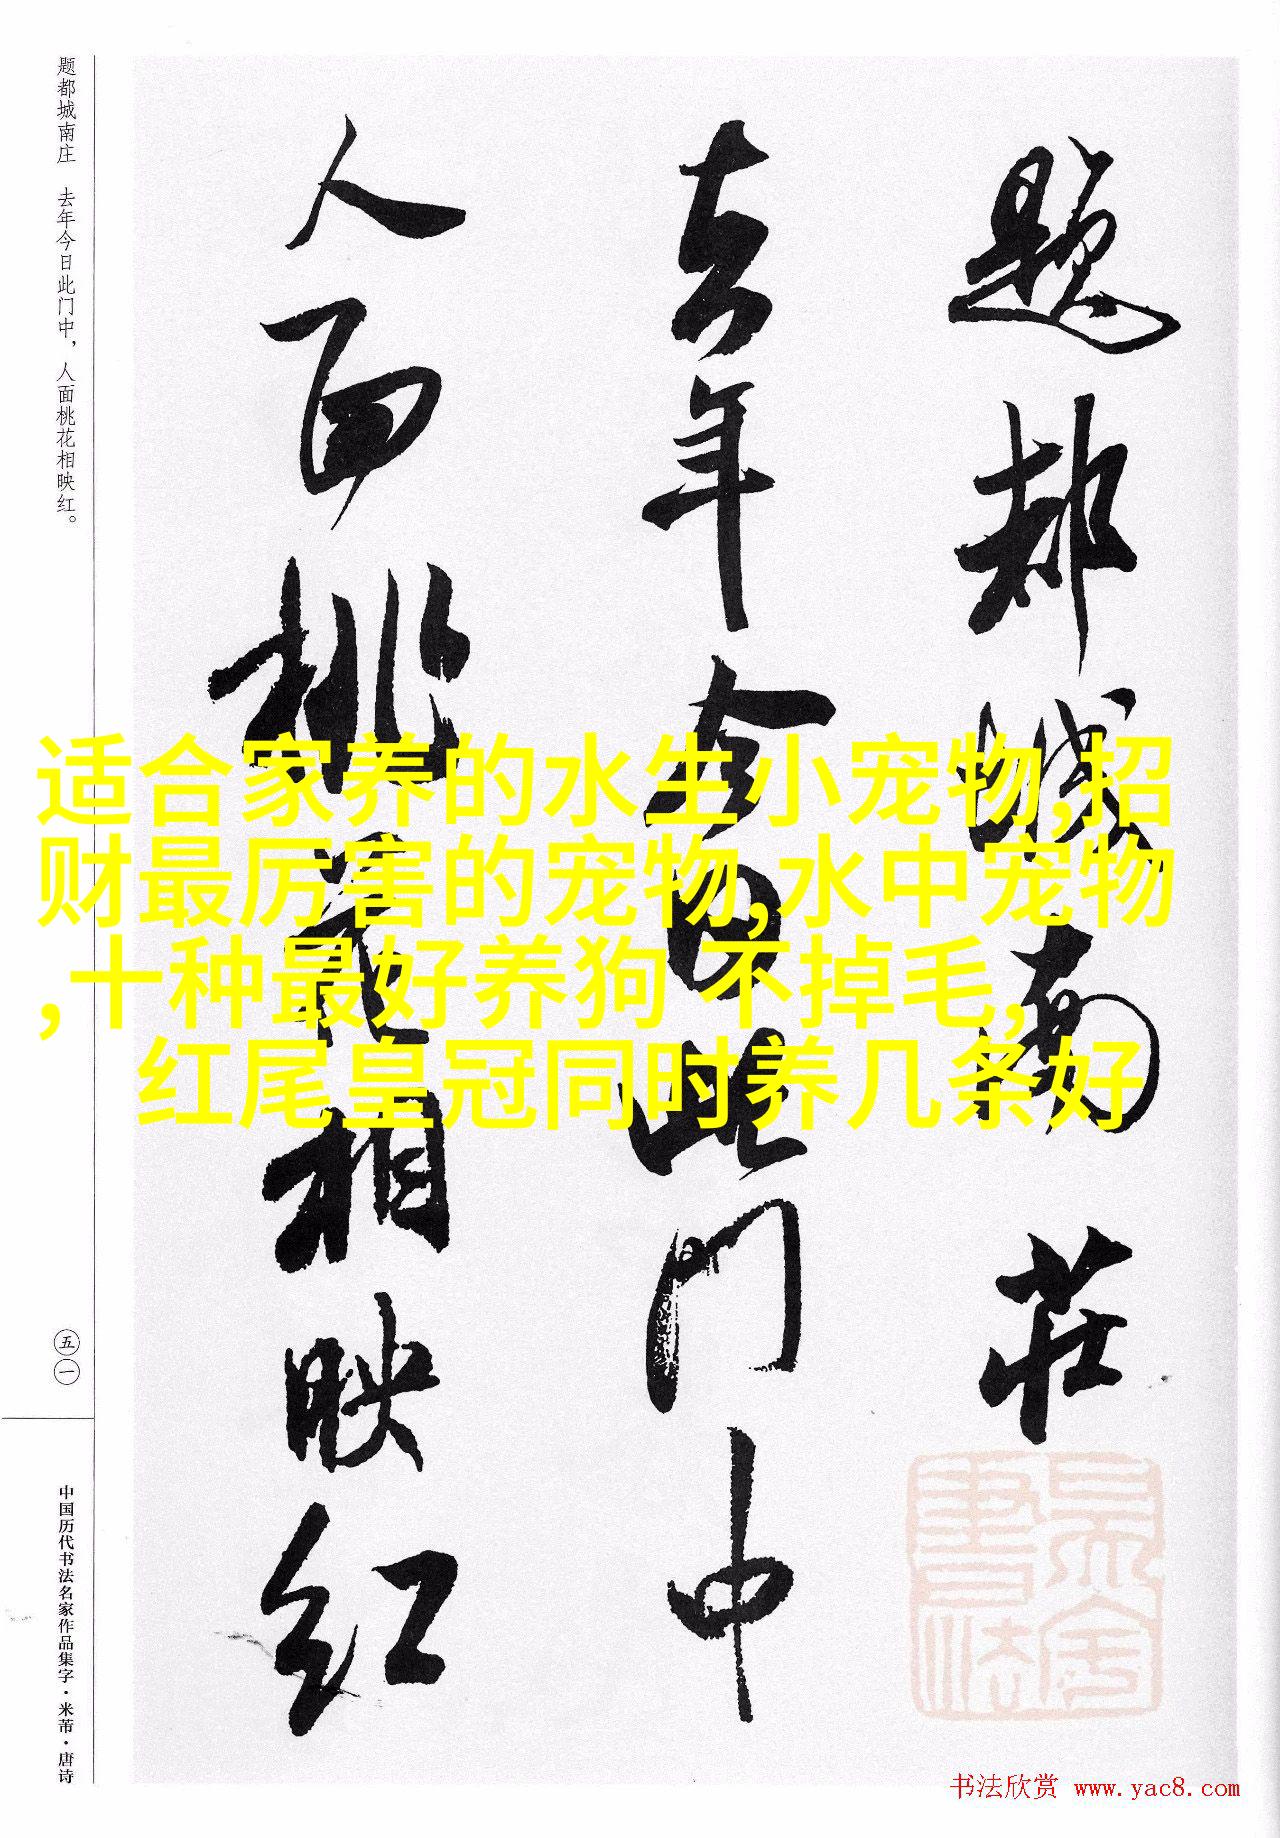 题都城南莊
去年今日此门中
人面桃花相映红
题都城南庄　去年今日此门中，人面桃花相映红。
五一
中国历代书法名家作品集字·米芾·唐诗
适合家养的水生小宠物,招
财最厉害的宠物,水中宠物
,十种最好养狗 不掉毛,
红尾皇冠同时养几条好
书法欣赏 www.yac8.com